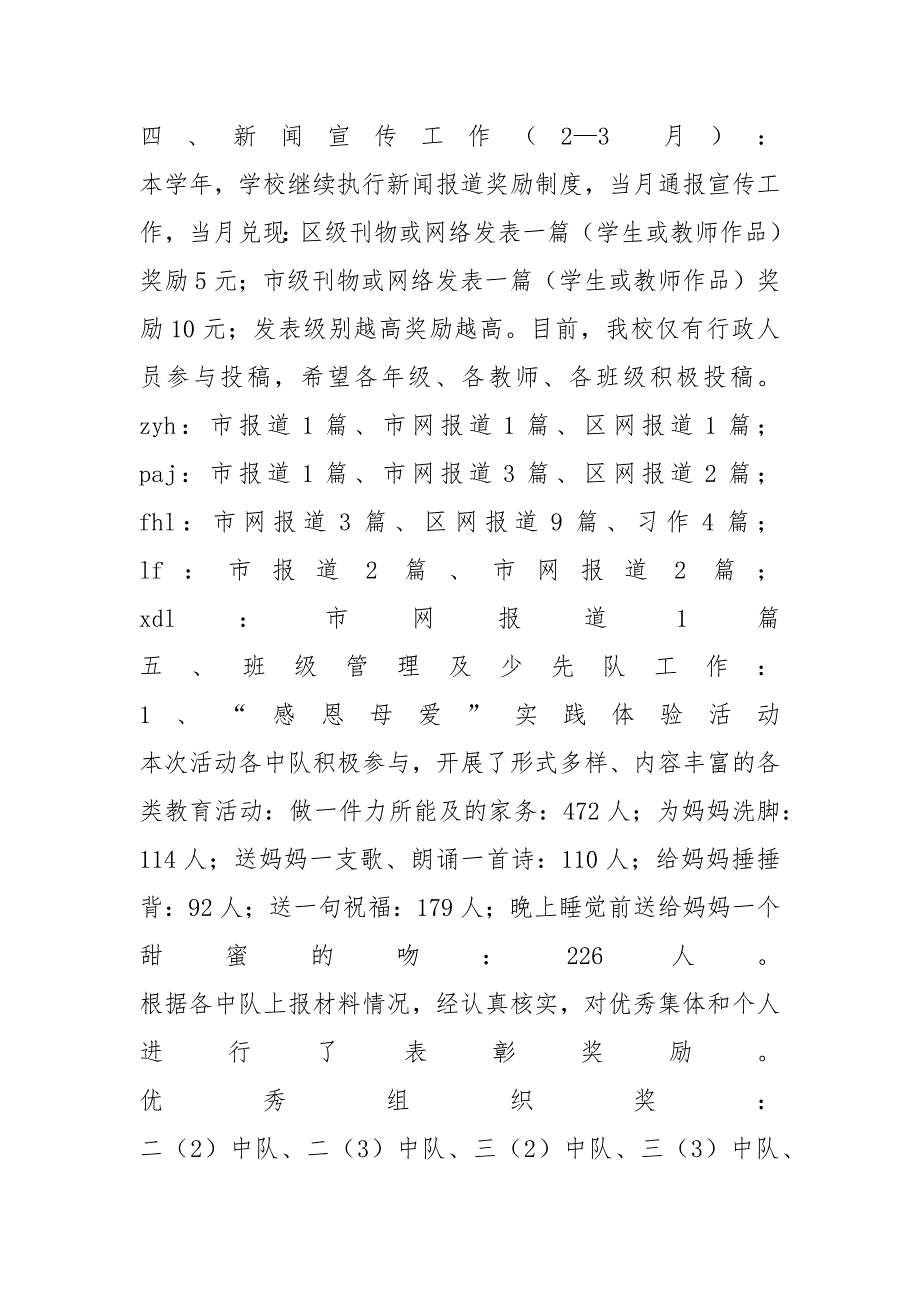 四、新闻宣传工作（2—3 月）：
本学年，学校继续执行新闻报道奖励制度，当月通报宣传工
作，当月兑现：区级刊物或网络发表一篇（学生或教师作品）
奖励 5 元；市级刊物或网络发表一篇（学生或教师作品）奖
励 10 元；发表级别越高奖励越高。目前，我校仅有行政人
员参与投稿，希望各年级、各教师、各班级积极投稿。
zyh：市报道 1 篇、市网报道 1 篇、区网报道 1 篇；
paj：市报道 1 篇、市网报道 3 篇、区网报道 2 篇；
fhl：市网报道 3 篇、区网报道 9 篇、习作 4 篇；
lf：市报道 2 篇、市网报道 2 篇；
xdl：市网报道 1 篇
五、班级管理及少先队工作：
1、“感恩母爱”实践体验活动
本次活动各中队积极参与，开展了形式多样、内容丰富的各
类教育活动：做一件力所能及的家务：472 人；为妈妈洗脚：
114 人；送妈妈一支歌、朗诵一首诗：110 人；给妈妈捶捶
背：92 人；送一句祝福：179 人；晚上睡觉前送给妈妈一个
甜蜜的吻：226 人。
根据各中队上报材料情况，经认真核实，对优秀集体和个人
进行了表彰奖励。
优秀组织奖：
二（2）中队、二（3）中队、三（2）中队、三（3）中队、